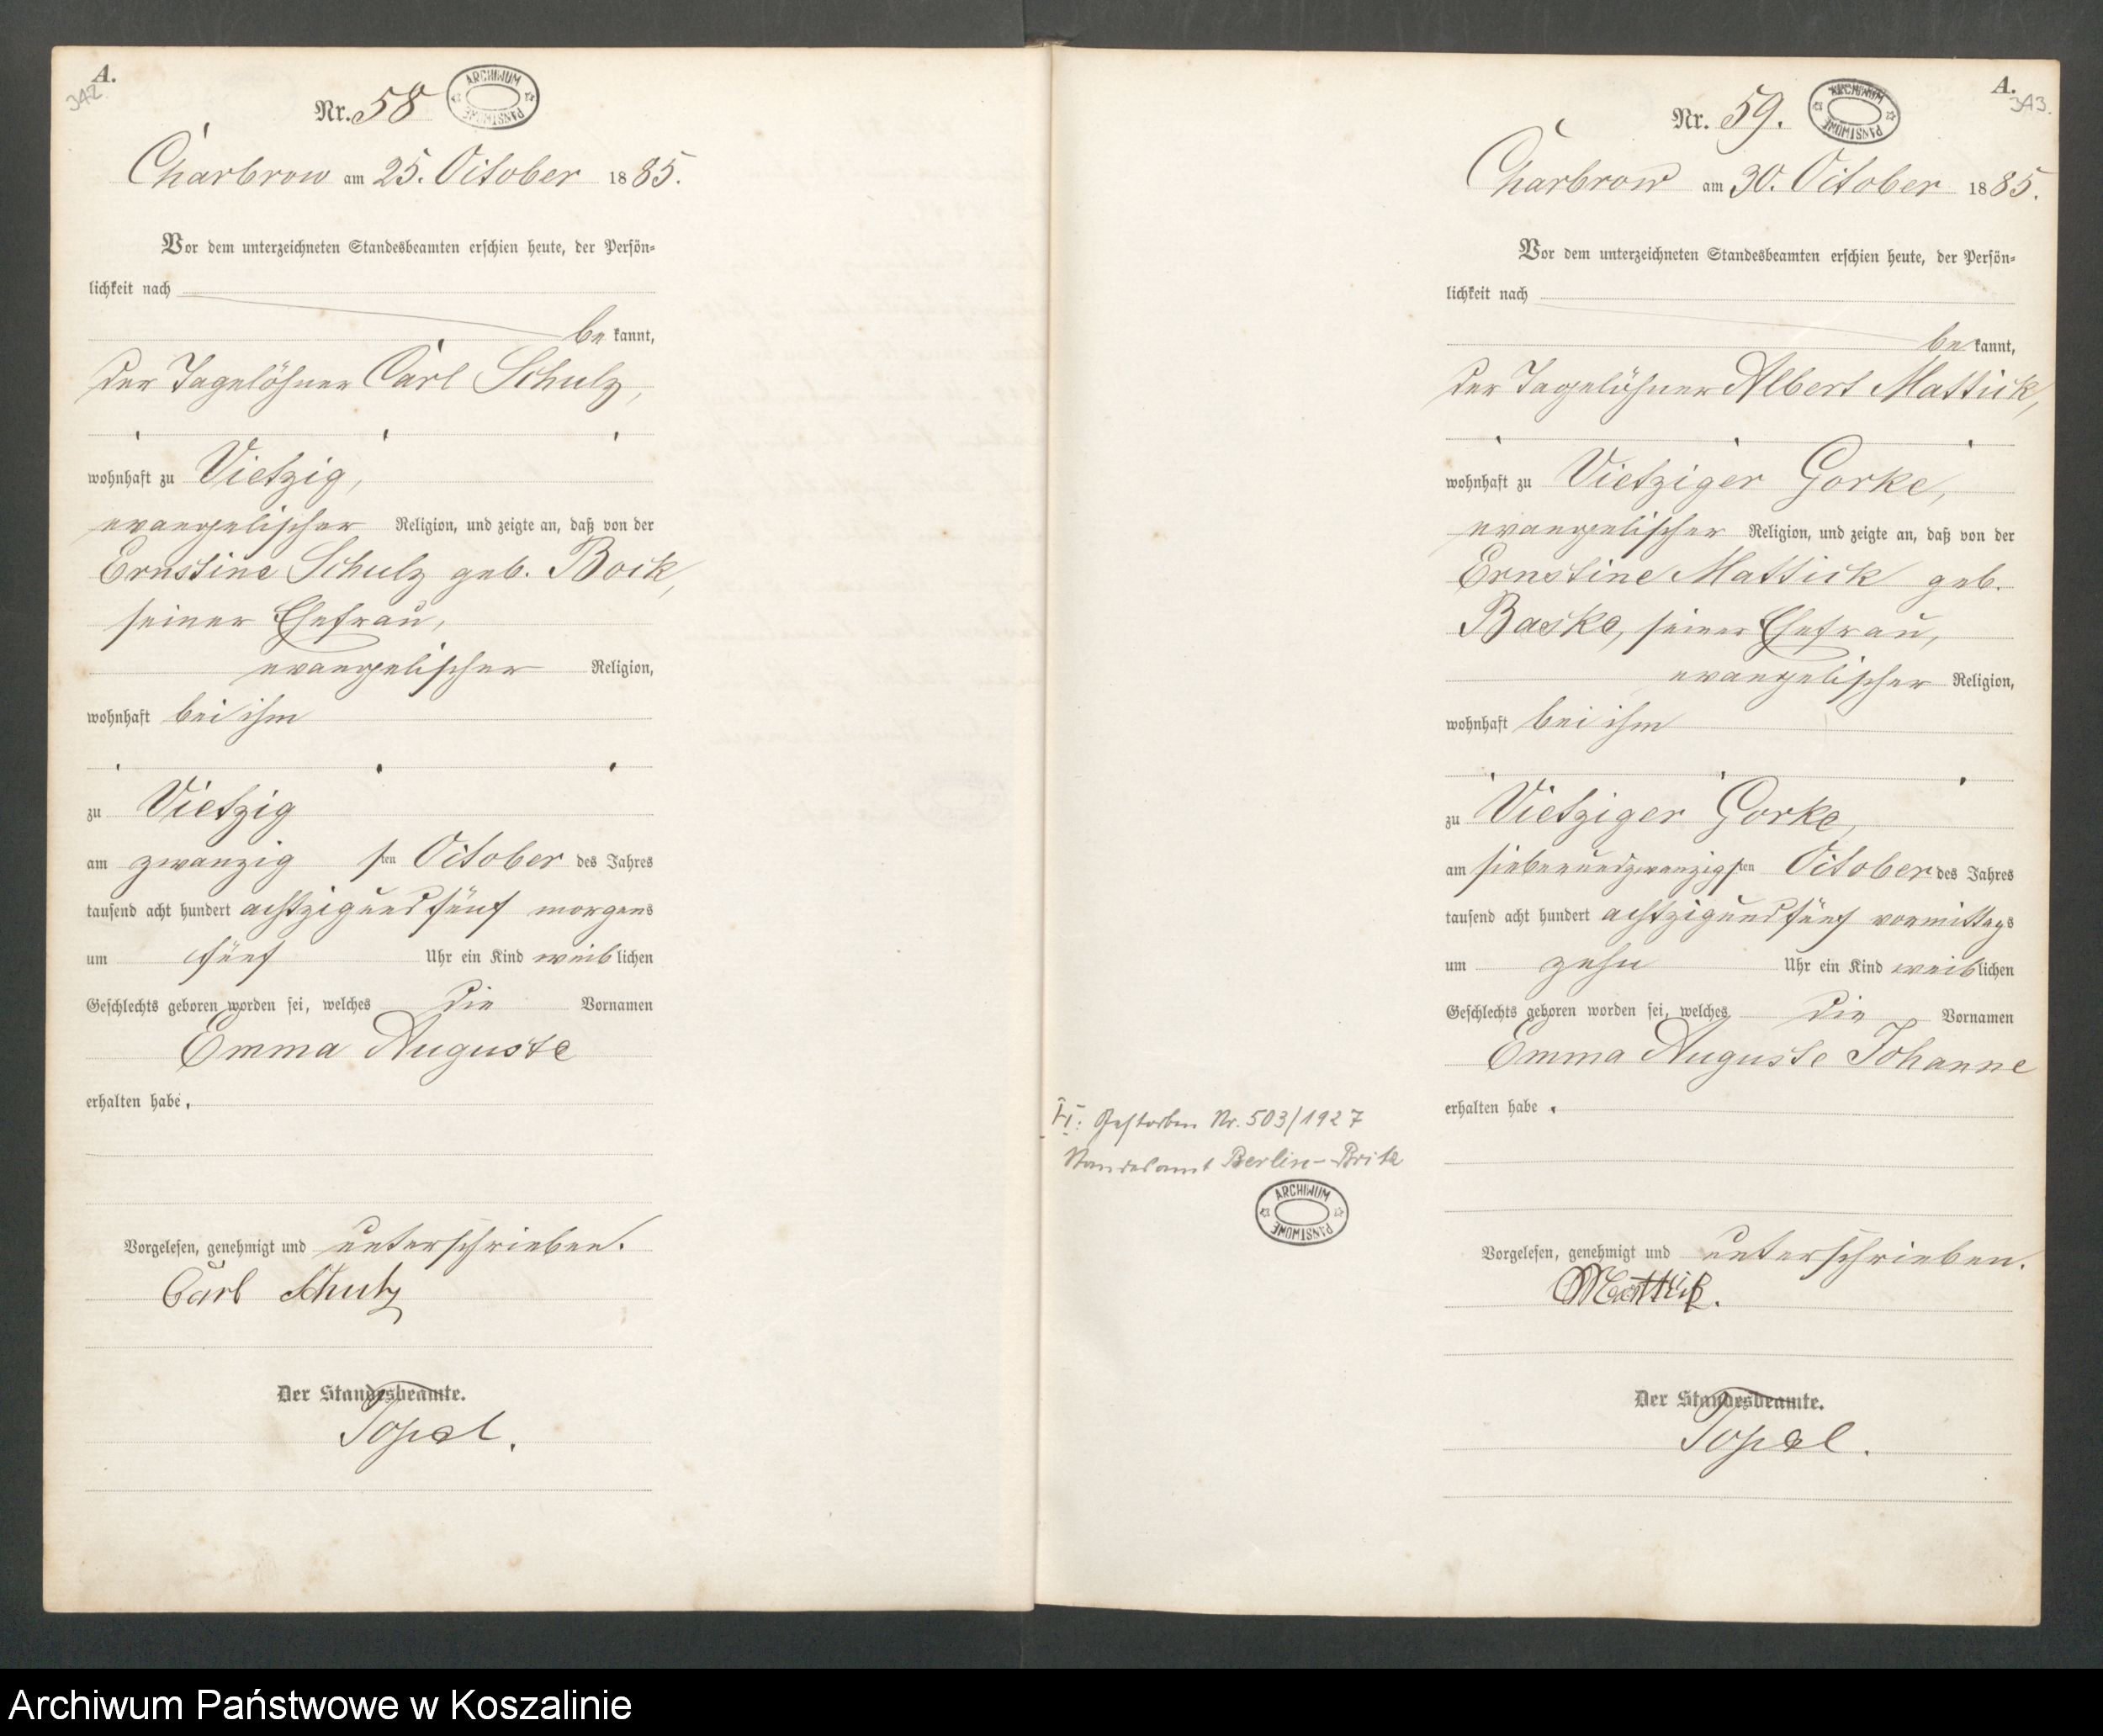 A.
342.
Nr. 58
ARCHIWUM PAŃSTWOWE
Charbrow am 25. October 1885.
Vor dem unterzeichneten Standesbeamten erschien heute, der Persön-
lichkeit nach
be kannt,
der Tagelöhner Carl Schulz,
wohnhaft zu Vietzig,
evangelischer Religion, und zeigte an, daß von der
Ernstine Schulz geb. Bock,
seiner Ehefrau,
evangelischer Religion,
wohnhaft bei ihm
zu Vietzig
am zwanzigsten October des Jahres
tausend acht hundert achtzig und fünf morgens
um fünf Uhr ein Kind weiblichen
Geschlechts geboren worden sei, welches die Vornamen
Emma Auguste
erhalten habe.
Vorgelesen, genehmigt und unterschrieben.
Carl Schulz
Der Standesbeamte.
Topel.
A.
343.
Nr. 59.
ARCHIWUM PAŃSTWOWE
Charbrow am 30. October 1885.
Vor dem unterzeichneten Standesbeamten erschien heute, der Persön-
lichkeit nach
be kannt,
der Tagelöhner Albert Mattick,
wohnhaft zu Vietziger Gorke,
evangelischer Religion, und zeigte an, daß von der
Ernstine Mattick geb.
Baske, seiner Ehefrau,
evangelischer Religion,
wohnhaft bei ihm
zu Vietziger Gorke,
am siebenundzwanzigsten October des Jahres
tausend acht hundert achtzig und fünf vormittags
um zehn Uhr ein Kind weiblichen
Geschlechts geboren worden sei, welches die Vornamen
Emma Auguste Johanne
erhalten habe.
Gestorben Nr. 503/1927
Standesamt Berlin-Britz
ARCHIWUM PAŃSTWOWE
Vorgelesen, genehmigt und unterschrieben.
Mattick.
Der Standesbeamte.
Topel.
Archiwum Państwowe w Koszalinie